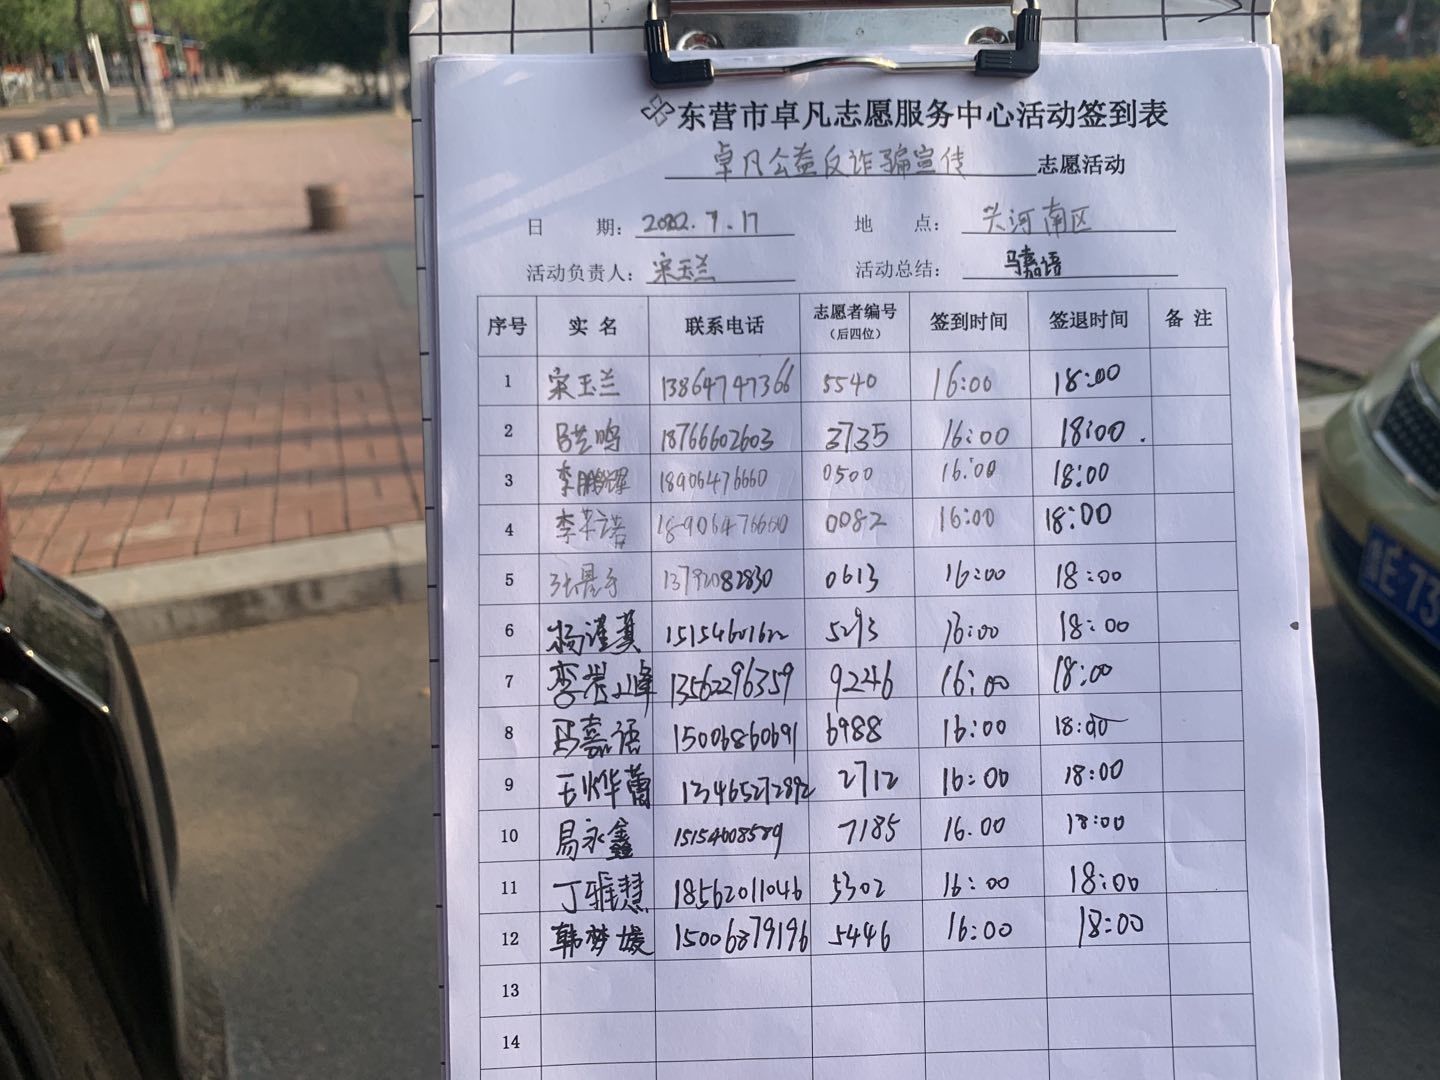 东营市卓凡志愿服务中心活动签到表
卓凡公益反诈骗宣传 志愿活动
日 期: 2022.7.17 地 点: 头河南区
活动负责人: 宋玉兰 活动总结: 马嘉语
序号 实名 联系电话 志愿者编号 (后四位) 签到时间 签退时间 备注
1 宋玉兰 13864747366 5540 16:00 18:00
2 鸣 18766602603 3735 16:00 18:00.
3 李鹏辉 18906476660 0500 16:00 18:00
4 李诺 18906476660 0082 16:00 18:00
5 张 13792082830 0613 16:00 18:00
6 杨谨 15154601622 5293 16:00 18:00
7 李岩峰 13562296359 9246 16:00 18:00
8 马嘉语 15006860691 6988 16:00 18:00
9 王烨蕾 13465272892 2712 16:00 18:00
10 易永鑫 15154608589 7185 16.00 18:00
11 丁雅慧 18562011046 5302 16:00 18:00
12 韩梦媛 15006879196 5446 16:00 18:00
13
14
E·73